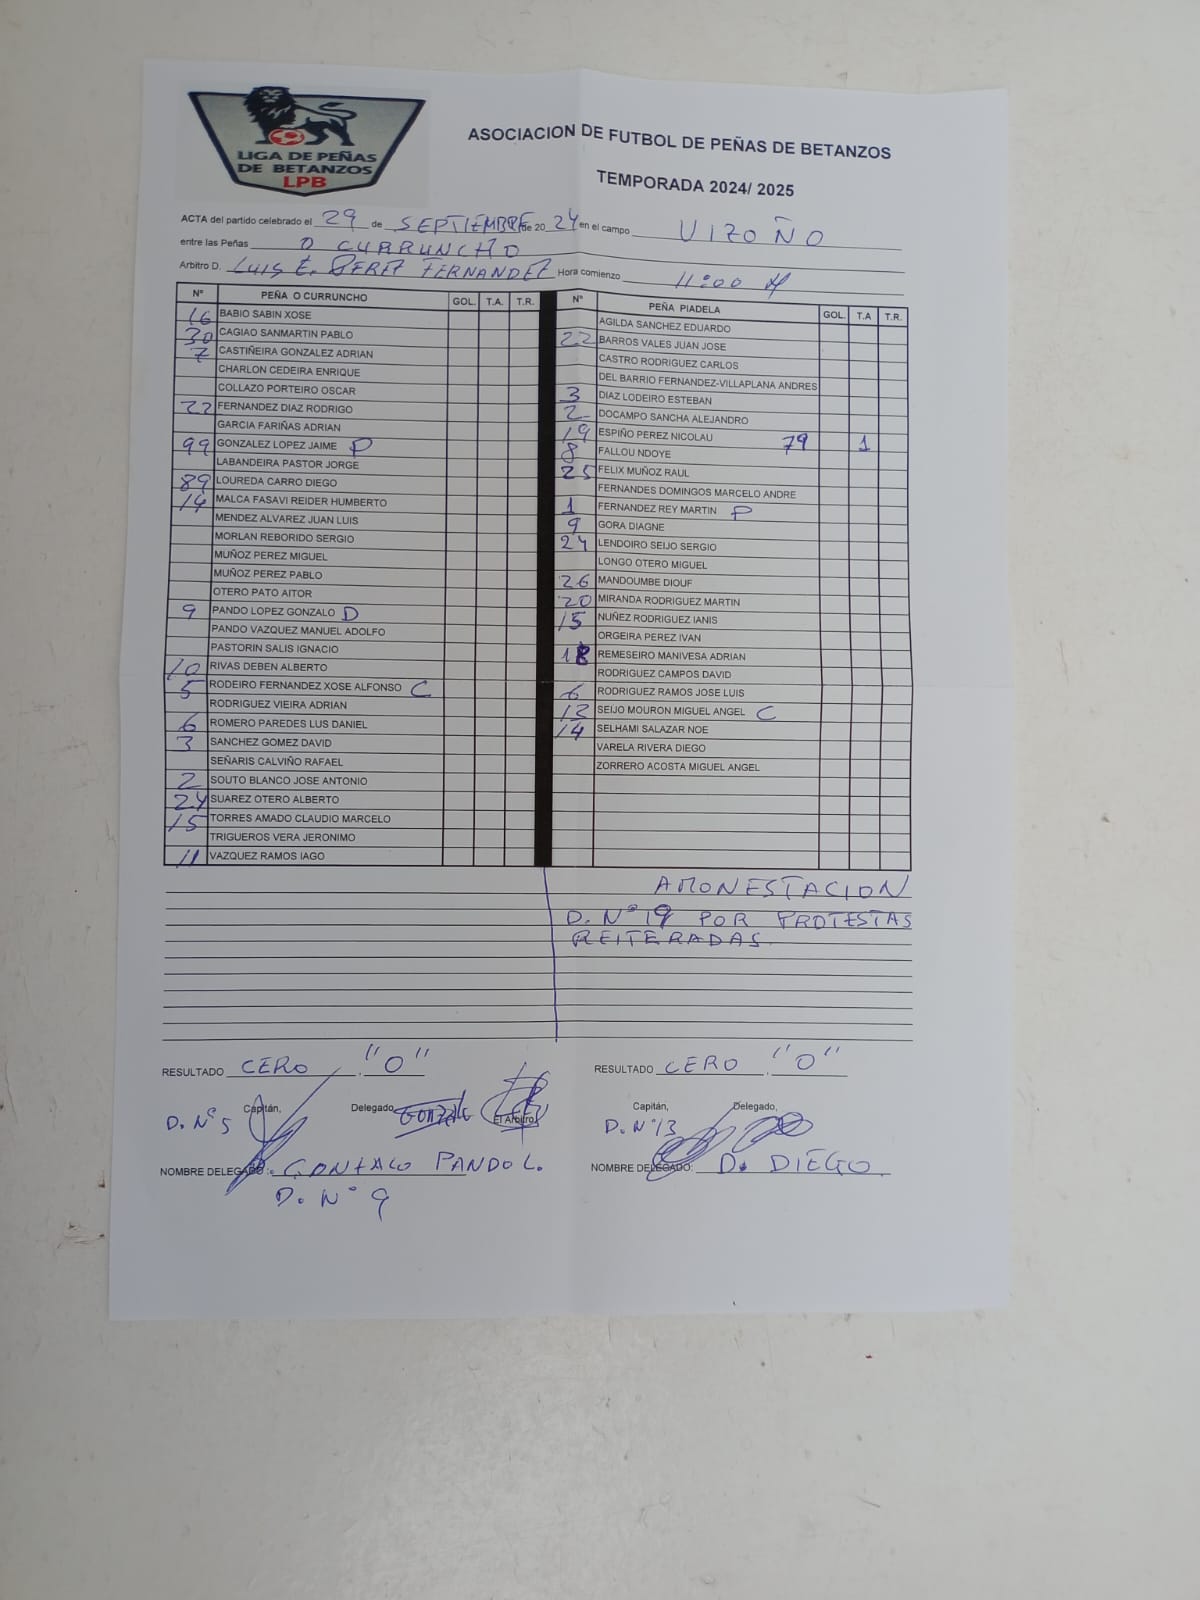 LIGA DE PEÑAS
DE BETANZOS
LPB
ASOCIACION DE FUTBOL DE PEÑAS DE BETANZOS
TEMPORADA 2024/ 2025
ACTA del partido celebrado el 29 de SEPTIEMBRE de 20 24 en el campo VIZOÑO
entre las Peñas O CURRUNCHO
Arbitro D. LUIS E. PEREZ FERNANDEZ Hora comienzo 11:00 H
Nº PEÑA O CURRUNCHO GOL. T.A. T.R. Nº PEÑA PIADELA GOL. T.A T.R.
16 BABIO SABIN XOSE
30 CAGIAO SANMARTIN PABLO
7 CASTIÑEIRA GONZALEZ ADRIAN
CHARLON CEDEIRA ENRIQUE
COLLAZO PORTEIRO OSCAR
22 FERNANDEZ DIAZ RODRIGO
GARCIA FARIÑAS ADRIAN
99 GONZALEZ LOPEZ JAIME P
LABANDEIRA PASTOR JORGE
89 LOUREDA CARRO DIEGO
14 MALCA FASAVI REIDER HUMBERTO
MENDEZ ALVAREZ JUAN LUIS
MORLAN REBORIDO SERGIO
MUÑOZ PEREZ MIGUEL
MUÑOZ PEREZ PABLO
OTERO PATO AITOR
9 PANDO LOPEZ GONZALO D
PANDO VAZQUEZ MANUEL ADOLFO
PASTORIN SALIS IGNACIO
10 RIVAS DEBEN ALBERTO
5 RODEIRO FERNANDEZ XOSE ALFONSO C
RODRIGUEZ VIEIRA ADRIAN
6 ROMERO PAREDES LUS DANIEL
3 SANCHEZ GOMEZ DAVID
SEÑARIS CALVIÑO RAFAEL
2 SOUTO BLANCO JOSE ANTONIO
24 SUAREZ OTERO ALBERTO
15 TORRES AMADO CLAUDIO MARCELO
TRIGUEROS VERA JERONIMO
11 VAZQUEZ RAMOS IAGO
AGILDA SANCHEZ EDUARDO
22 BARROS VALES JUAN JOSE
CASTRO RODRIGUEZ CARLOS
DEL BARRIO FERNANDEZ-VILLAPLANA ANDRES
3 DIAZ LODEIRO ESTEBAN
2 DOCAMPO SANCHA ALEJANDRO
19 ESPIÑO PEREZ NICOLAU 79 1
8 FALLOU NDOYE
25 FELIX MUÑOZ RAUL
FERNANDES DOMINGOS MARCELO ANDRE
1 FERNANDEZ REY MARTIN P
9 GORA DIAGNE
24 LENDOIRO SEIJO SERGIO
LONGO OTERO MIGUEL
26 MANDOUMBE DIOUF
20 MIRANDA RODRIGUEZ MARTIN
15 NUÑEZ RODRIGUEZ IANIS
ORGEIRA PEREZ IVAN
18 REMESEIRO MANIVESA ADRIAN
RODRIGUEZ CAMPOS DAVID
6 RODRIGUEZ RAMOS JOSE LUIS
13 SEIJO MOURON MIGUEL ANGEL C
14 SELHAMI SALAZAR NOE
VARELA RIVERA DIEGO
ZORRERO ACOSTA MIGUEL ANGEL
AMONESTACION
D. Nº 19 POR PROTESTAS
REITERADAS
RESULTADO CERO "0" RESULTADO CERO "0"
Capitán, Delegado, El Arbitro, Capitán, Delegado,
D. Nº 5 D. Nº 13
NOMBRE DELEGADO:- GONZALO PANDO L. NOMBRE DELEGADO: D. DIEGO
D. Nº 9